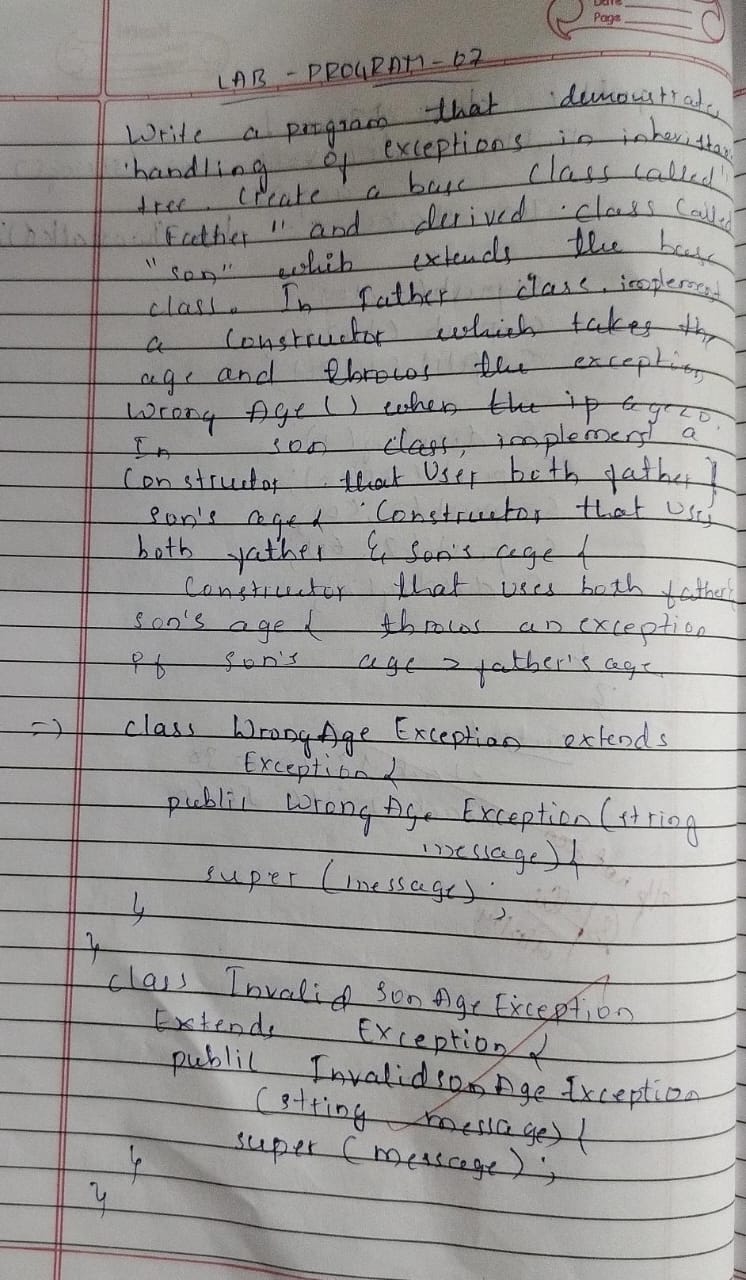 Date
Page
LAB - PROGRAM - 07
Write a program that demonstrate
handling of exceptions in inheritan
tree. Create a base class called
"Father" and derived class called
"son" which extends the base
class. In father class, implement
a constructor which takes the
age and throws the exception
Wrong Age() when the ip age<0.
In son class, implement a
constructor that user both father &
son's age & constructor that uses
both father & son's age &
constructor that uses both father &
son's age & throws an exception
if son's age > father's age
=> class WrongAge Exception extends
Exception {
public WrongAge Exception (string
message) {
super (message);
}
}
class Invalid Son Age Exception
Extends Exception {
public InvalidsonAge Exception
(string message) {
super (message);
}
}